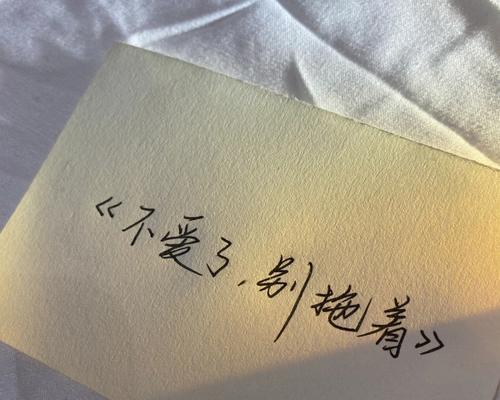 《不爱了,别拖着》